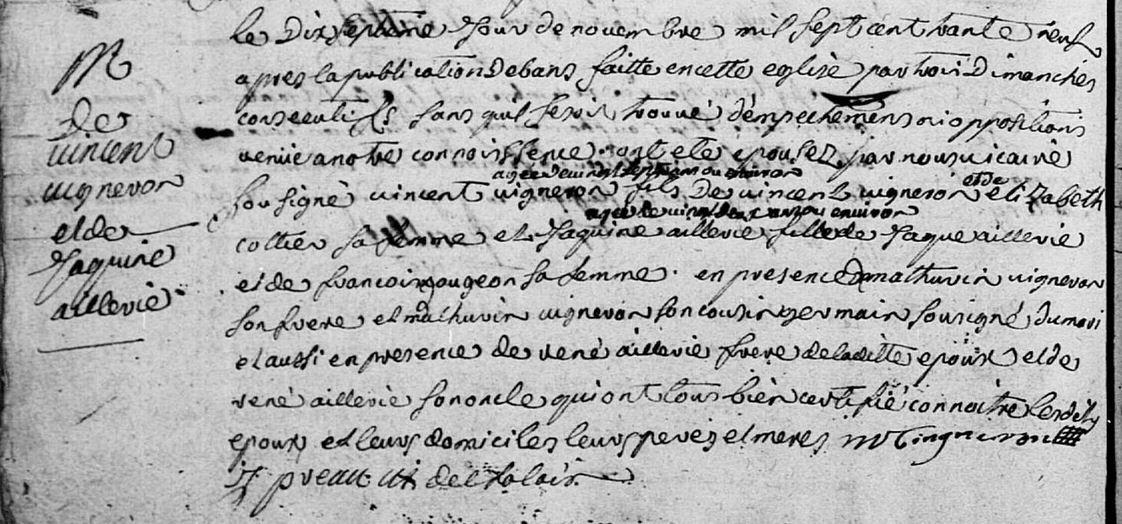 M
de
vincent
vigneron
et de
Jaquine
aillerie
le Dix septieme Jour de novembre mil sept cent trante neuf
apres la publication De bans faitte en cette eglise par trois Dimanches
consecutifs sans qu'il se soit trouvé d'empechemens ni oppositions
venüe a notre connoissence ont eté epousez par nous vicaire
agee de vingt sept ans ou environ
sousigné vincent vigneron fils De vincent vigneron et de elizabeth
agee de vingt deux ans ou environ
collier sa femme et Jaquine aillerie fille de Jaque aillerie
et de francoise gougeon sa femme. en presence de mathurin vigneron
son frere et mathurin vigneron son cousin germain sousigné du mari
et aussi en presence de rené aillerie frere de laditte epoux et de
rené aillerie son oncle qui ont tous bien certifié connoitre lesdits
epoux et leurs domiciles leurs peres et meres m vigneron